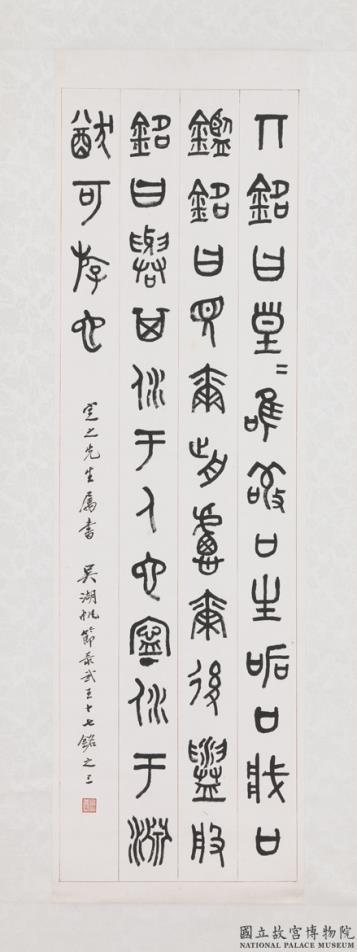 几銘曰皇=唯敬口生㖃口戕口
鑑銘曰見爾前慮爾後盥般
銘曰與其溺于人也寧溺于淵
猷可游也
定之先生屬書 吳湖帆節录武王十七銘之三
國立故宮博物院
NATIONAL PALACE MUSEUM